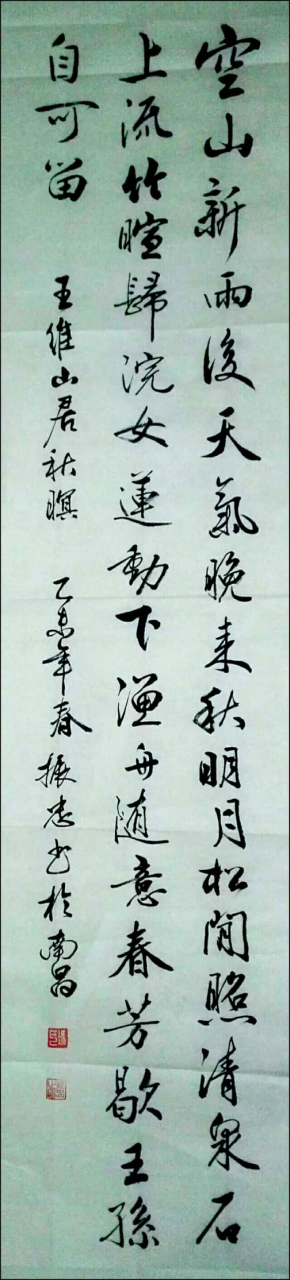 空山新雨後天氣晚来秋明月松間照清泉石
上流竹暄歸浣女蓮動下漁舟随意春芳歇王孫
自可留 王維山居秋暝 乙未年春振忠书於南昌